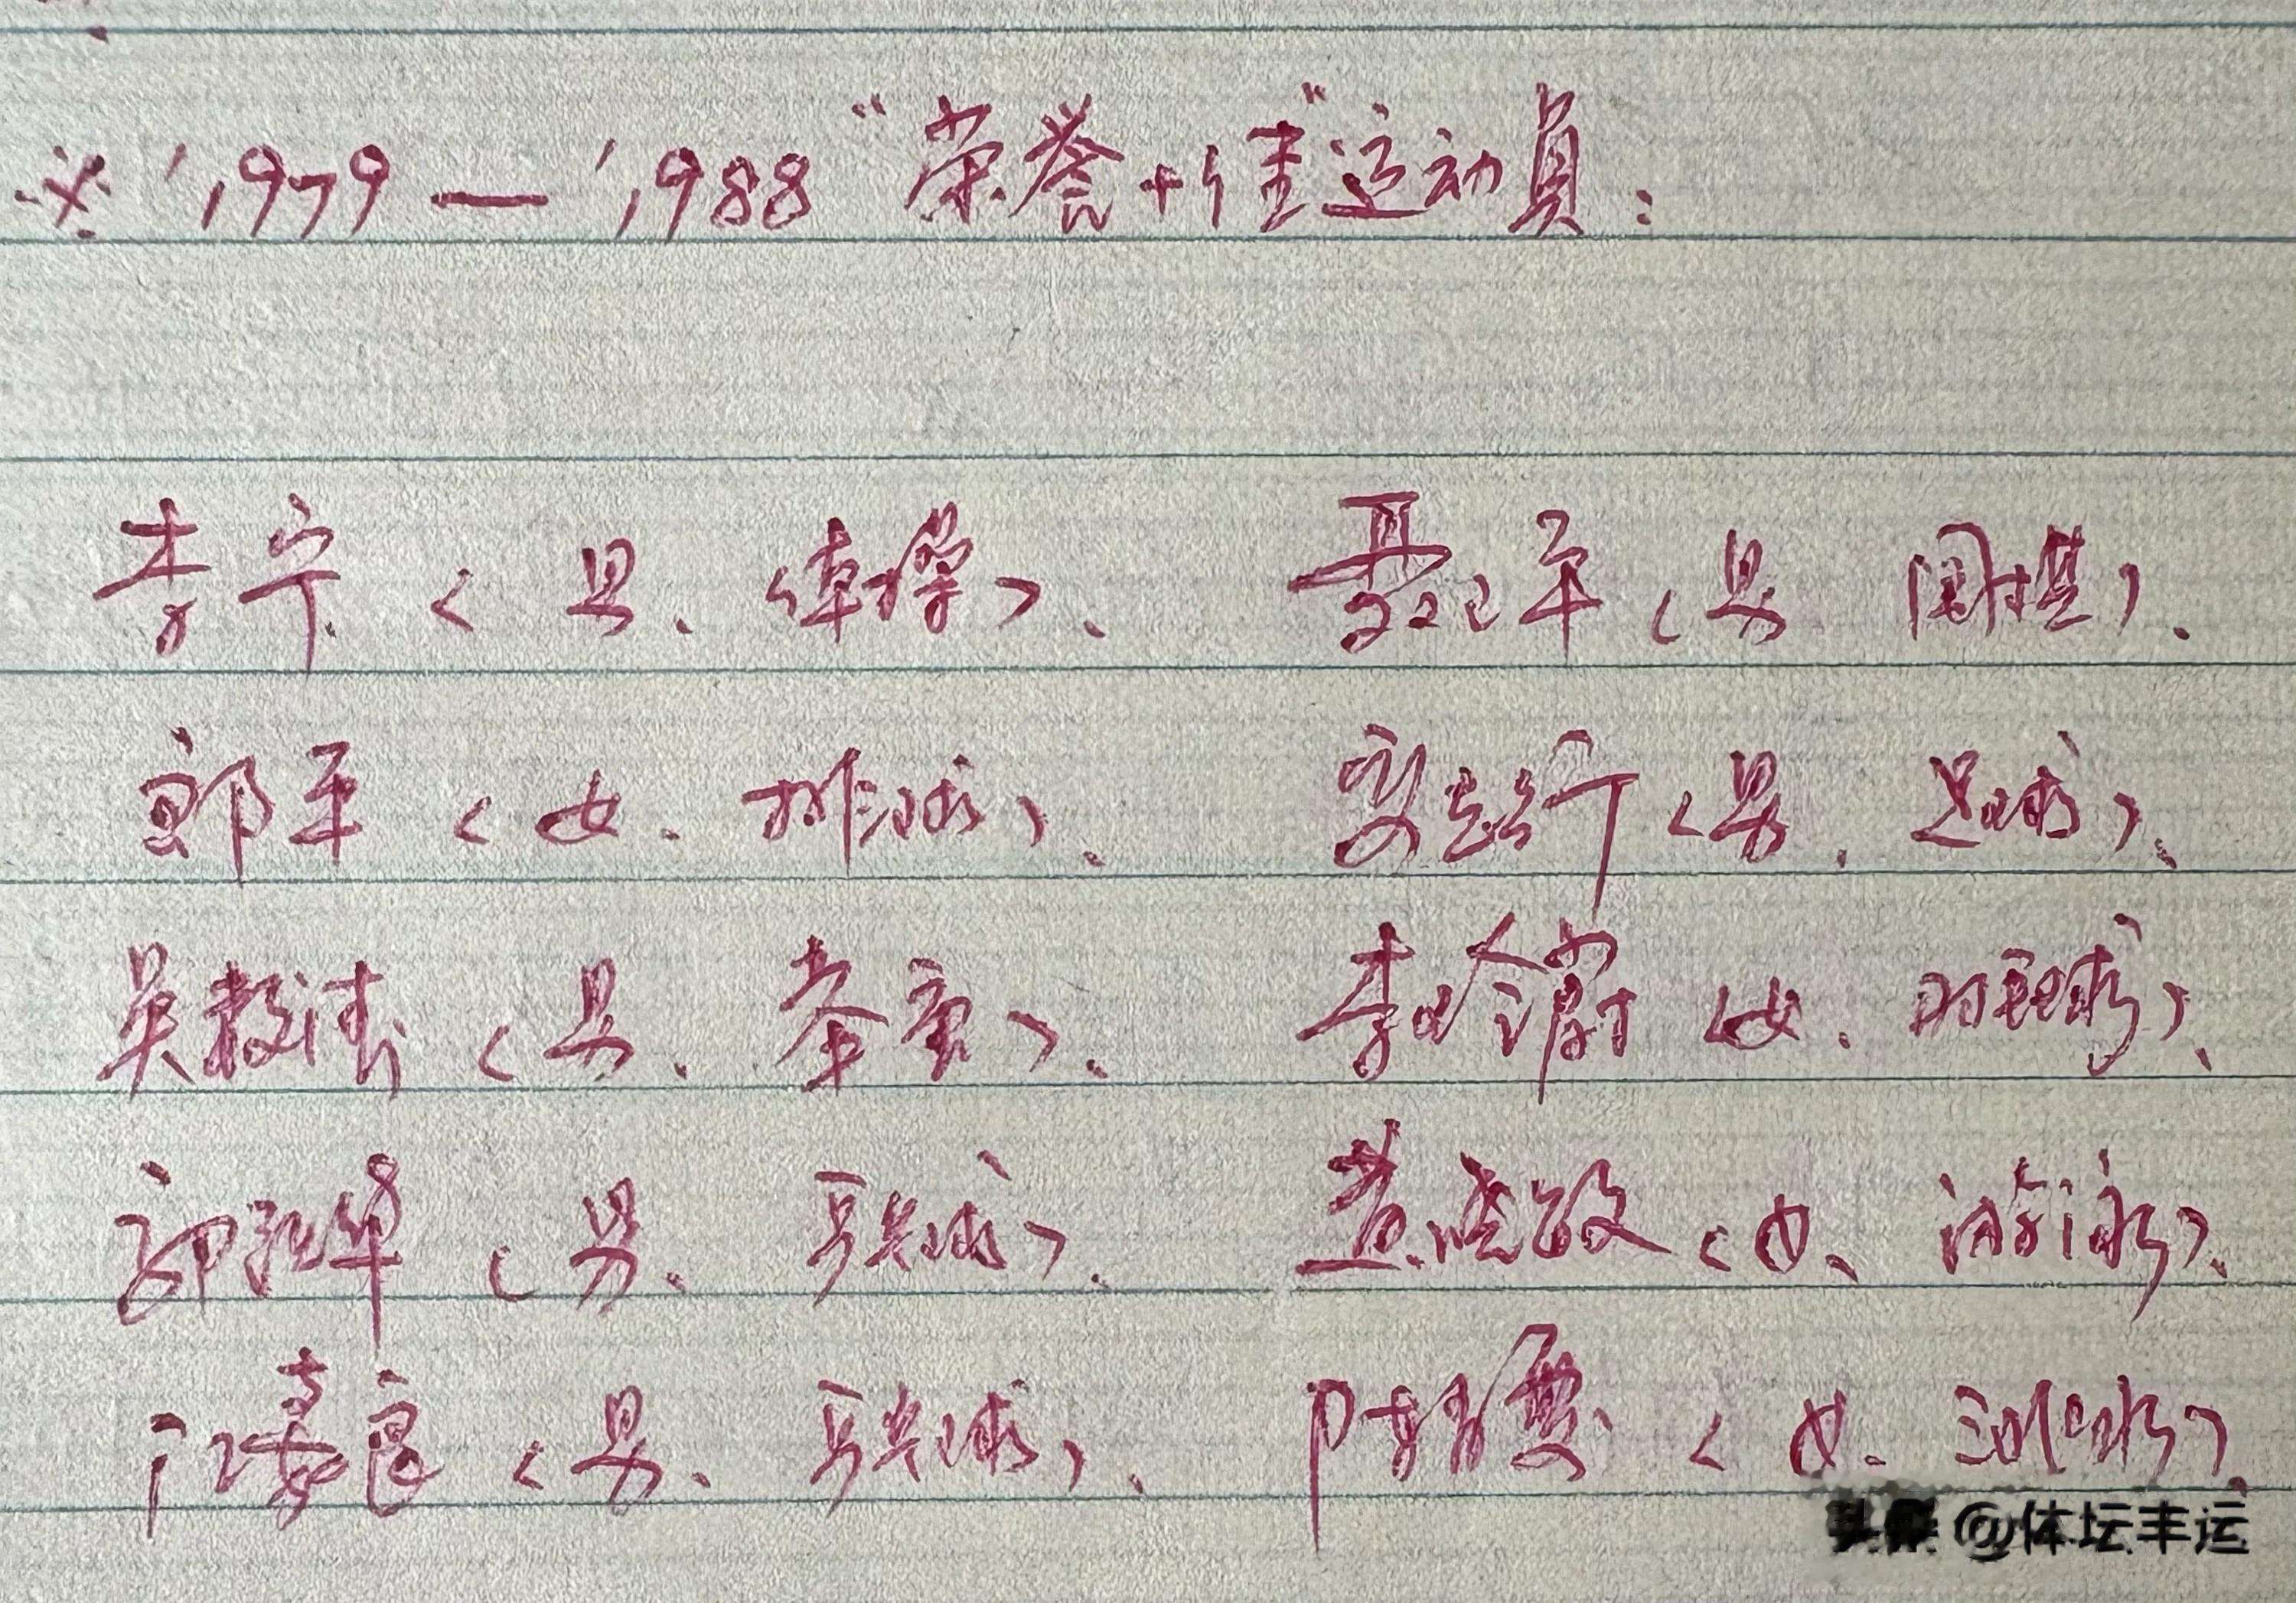 ※ '1979 — '1988 “荣誉十佳”运动員:
李宁（男、体操）、 聂卫平（男 围棋）、
郎平（女、排球）、 容志行（男、足球）、
吴数德（男、举重）、 李玲蔚（女、羽毛球）、
郭跃华（男、乒乓球）、 黄晓敏（女、游泳）、
江嘉良（男、乒乓球）、 陈肖霞（女、跳水）
头条 @体坛丰运